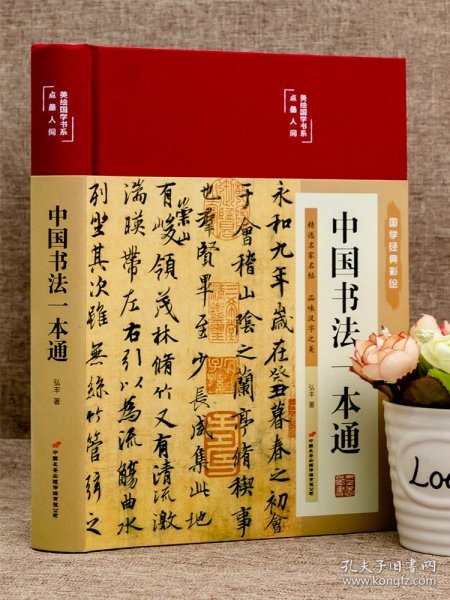 美绘国学书系
点墨人间
中国书法一本通
弘丰 著
美绘国学书系
点墨人间
国学经典彩绘
中国书法一本通
精选名家名帖 品味汉字之美
弘丰 著
永和九年歲在癸丑暮春之初會
于會稽山陰之蘭亭脩禊事
也羣賢畢至少長咸集此地
有崇山峻領茂林脩竹又有清流激
湍暎帶左右引以為流觴曲水
列坐其次雖無絲竹管弦之
Loo
孔夫子旧书网
www.kongfz.com